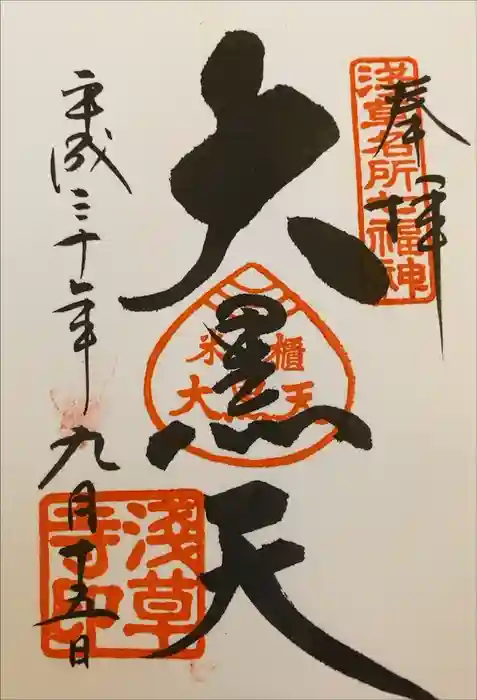 奉拝
浅草名所七福神
大黒天
米櫃
大黒天
平成三十年九月十五日
浅草
寺印